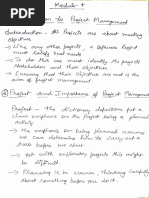 Module - 1
Introduction to Project Management
Introduction - All Projects are about meeting
objectives.
→ Like any other projects, a software Project
must satisfy real needs.
→ To do this we must identify the project
stakeholders and their objectives
→ Ensuring that their objectives are met is the
aim of project management
Project and Importance of Project Management
Project - The dictionary definitions put a
clear emphasis on the Project being a planned
activity.
→ the emphasis on being planned assumes
we can determine how to carry out a
task before we
→ yet with exploratory projects this might
be difficult
→ Planning is in essence thinking carefully
about something before you do it.